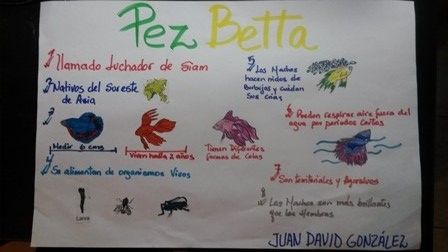 Pez Betta
1 Llamado luchador de Siam
2 Nativos del Sureste
de Asia
3
Medir 6 cms
Viven hasta 2 años
Tienen Diferentes
formas de Colas
4 Se alimentan de organismos Vivos
Larva
5 Los Machos
hacen nidos de
Burbujas y cuidan
Sus crias
6 Pueden respirar aire fuera del
agua por periodos Cortos
7
Son territoriales y Agresivos
8
Los Machos son más brillantes
que las Hembras
JUAN DAVID GONZÁLEZ